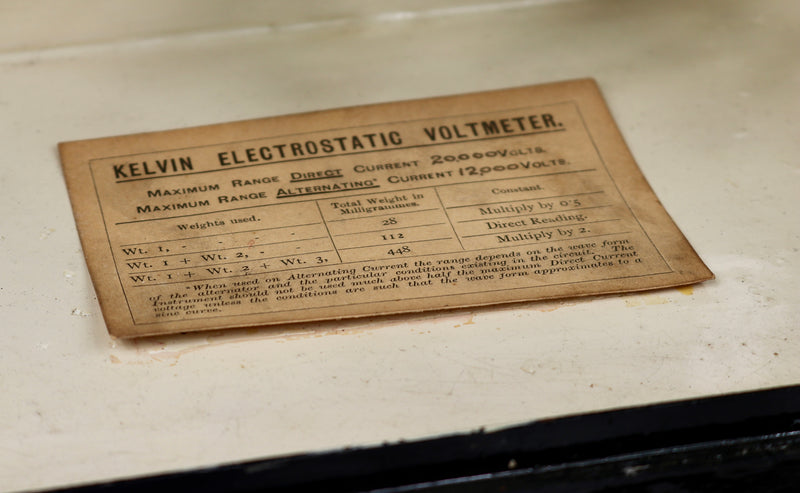 KELVIN ELECTROSTATIC VOLTMETER.
MAXIMUM RANGE DIRECT CURRENT 20,000 VOLTS.
MAXIMUM RANGE ALTERNATING* CURRENT 12,000 VOLTS.
Weights used. Total Weight in Milligrammes. Constant.
Wt. 1, - - - 28 Multiply by 0·5
Wt. 1 + Wt. 2, - - 112 Direct Reading.
Wt. 1 + Wt. 2 + Wt. 3, 448 Multiply by 2.
*When used on Alternating Current the range depends on the wave form
of the alternator and the particular conditions existing in the circuit. The
Instrument should not be used much above half the maximum Direct Current
voltage unless the conditions are such that the wave form approximates to a
sine curve.